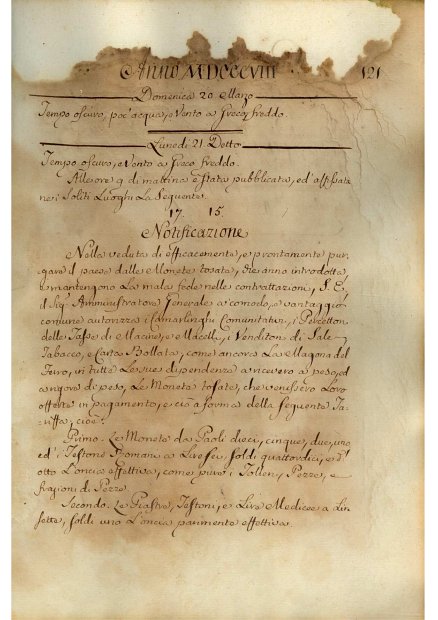 Anno MDCCCVIII 121
Domenica 20 Marzo
Tempo oscuro, poc'acqua, e Vento a Greco freddo.
Lunedì 21 Detto
Tempo oscuro, e Vento a Greco freddo.
All'ore 9 di mattina è stata pubblicata, ed' affissata
nei Soliti Luoghi La Seguente
17. 15.
Notificazione
Nella veduta di efficacemente, e prontamente pur-
gare il paese dalle Monete tosate, che anno introdotta,
e mantengono La mala fede nelle contrattazioni, S. E.
il Sig. Amministratore Generale a comodo, e vantaggio
comune autorizza i Camarlinghi Comunitativi, i Percettori
delle Tasse di Macine, e Macelli, i Venditori di Sale
Tabacco, e Carta Bollata, come ancora La Magona del
Ferro, in tutte Le sue dipendenze a ricevere a peso, ed
a rigore di peso, Le Monete tosate, che venissero Loro
offerte in pagamento, e ciò a forma della seguente Ta-
riffa, cioè.
Primo. Le Monete da Paoli dieci, cinque, due, uno
ed' i Testoni Romani a Lire sei, soldi quattordici, e
otto L'oncia effettiva, come pure i Talleri, Pezze, e
frazioni di Pezze
Secondo. Le Piastre, Testoni, e Lire Medicee a Lire
sette, soldi uno L'oncia parimente effettiva.